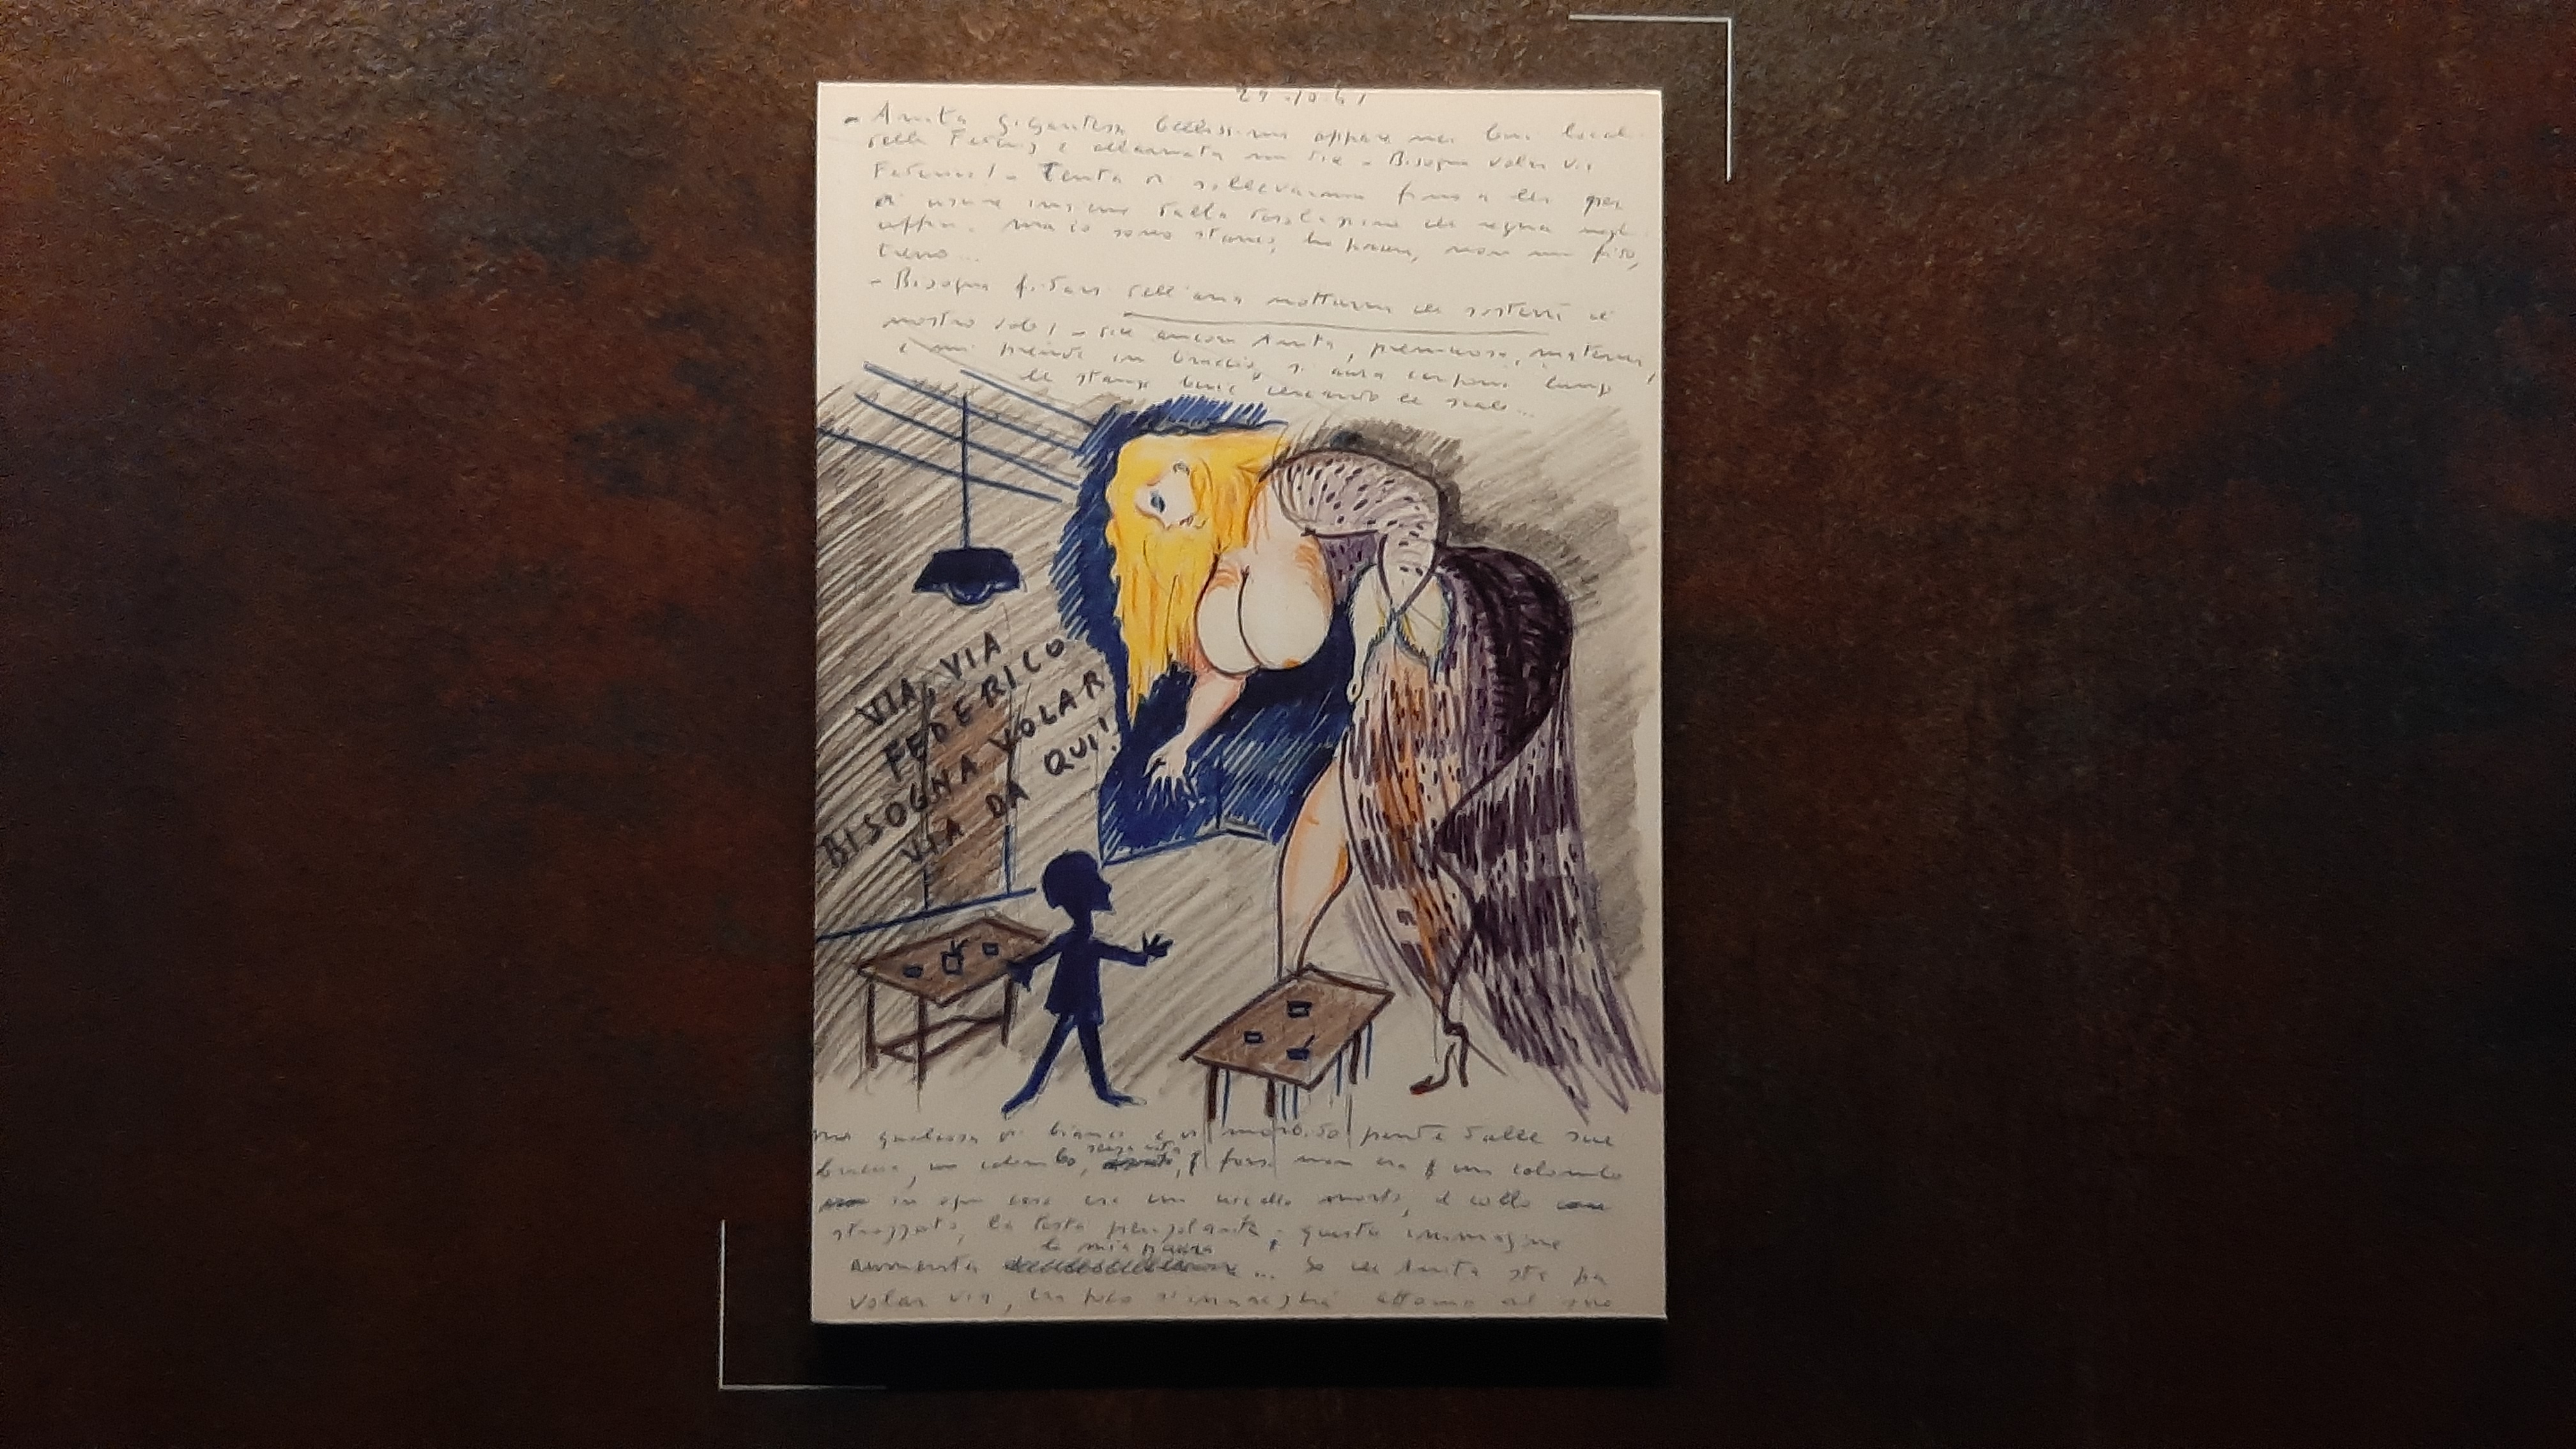 29.10.61
- Anita gigantesca bellissima appare nei bui locali
della Federiz è allarmata mi dice - Bisogna volar via
Federico! - Tenta di sollevarmi fino a lei per
di insieme dalla desolazione che regna negli
uffici. ma io sono stanco, ho paura, non mi fido,
- Bisogna fidarsi dell'aria notturna che sosterrà il
nostro volo! - dice ancora Anita, premurosa, materna,
e mi prende in braccio, si carponi lungo
le stanze buie cercando le scale...
VIA, VIA
FEDERICO
BISOGNA VOLAR
VIA DA QUI!
ma qualcosa di bianco e di morbido pende dalle sue
braccia, un colombo, senza vita, forse non era un colombo
in ogni caso era un uccello morto, il collo
strozzato, la testa penzolante, questa immagine
aumenta la mia paura ... So che Anita sta per
volar via, tra poco attorno al suo